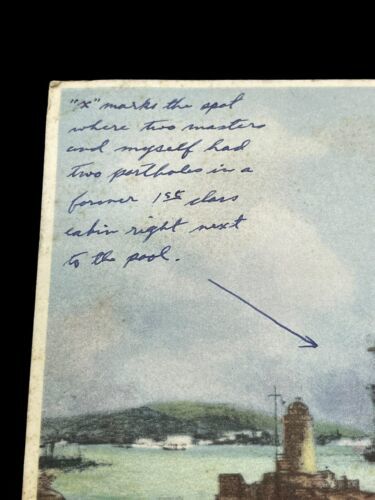 "X" marks the spot
where two masters
and myself had
two portholes in a
former 1st class
cabin right next
to the pool.